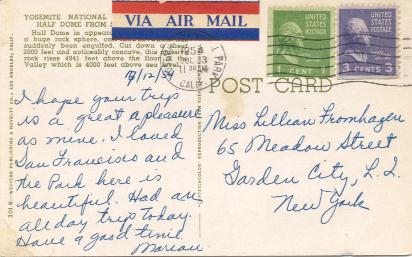 YOSEMITE NATIONAL
HALF DOME FROM
Half Dome in appearance
a huge rock sphere,
suddenly been engulfed. Cut down a sheer
2000 feet and noticeably concave, this
rock rises 4941 feet above the floor of the
Valley which is 4000 feet above sea level.
VIA AIR MAIL
CALIF
1 CENT 1
3 CENTS 3
POST CARD
I hope your trip
is a great a pleasure
as mine. I loved
San Francisco and
the Park here is
beautiful. Had an
all day trip today.
Have a good time.
Marian
Miss Lillian Fromhagen
65 Meadow Street
Garden City, L.I.
New York